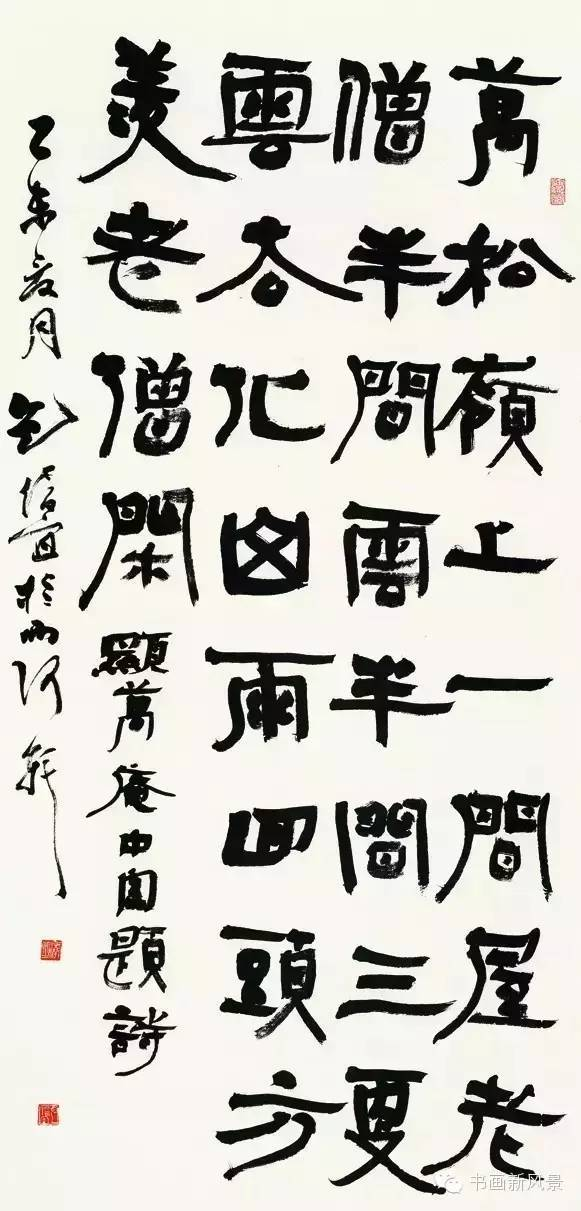 萬松嶺上一間屋老
僧半間雲半間三更
雲去化山雨回頭方
羨老僧閑
顯萬庵中題詩
乙未夏月於兩河軒
书画新风景